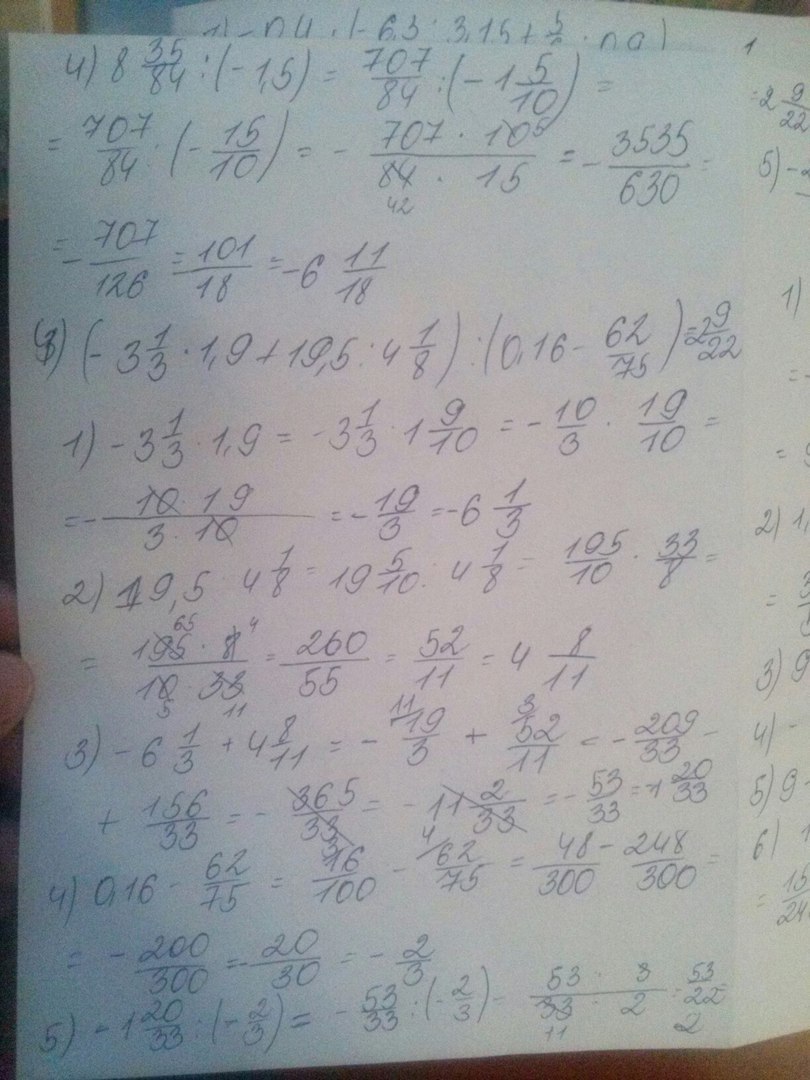 1) -0,4 · (-6,3 : 3,15 +
4) 8 35/84 : (-1,5) = 707/84 : (-1 5/10) =
= 707/84 · (-15/10) = - 707 · 10 5/84 42 · 15 = - 3535/630 =
= - 707/126 = 101/18 = -6 11/18
3) (-3 1/3 · 1,9 + 19,5 : 4 1/8) : (0,16 - 62/75) = 2 9/22
1) -3 1/3 · 1,9 = -3 1/3 · 1 9/10 = - 10/3 · 19/10 =
= - 10 · 19/3 · 10 = - 19/3 = -6 1/3
2) 19,5 · 4 1/8 = 19 5/10 : 4 1/8 = 195/10 · 33/8 =
= 195 65 · 8 4/10 5 · 33 11 = 260/55 = 52/11 = 4 8/11
3) -6 1/3 + 4 8/11 = - 11 19/3 + 3 52/11 = - 209/33 -
+ 156/33 = - 365/33 = - 11 2/33 = - 53/33 = -1 20/33
4) 0,16 - 62/75 = 3 16/100 - 4 62/75 = 48 - 248/300 300 =
= - 200/300 = - 20/30 = - 2/3
5) -1 20/33 : (-2/3) = - 53/33 : (-2/3) - 53 · 3/33 11 · 2 = 53/22
2
1
= 2 9/22
5) -
1)
=
=
2) 1,
=
3) 9
4) -
5) 9
6) 1
= 15/24